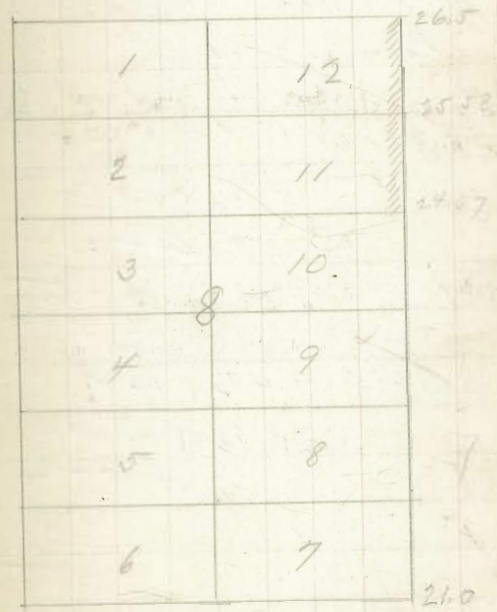 26.5
1 12
25.58
2 11
24.67
3 10.
8
4 9
5 8
6 7
21.0